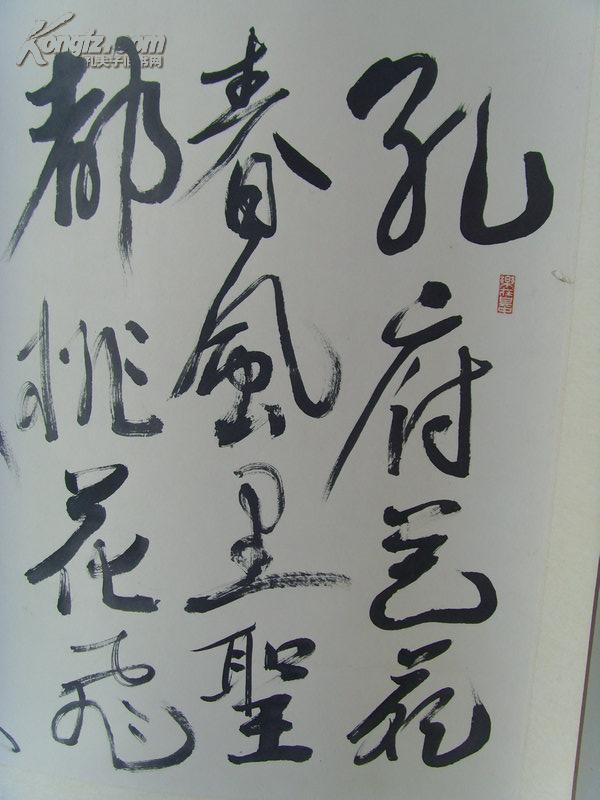 Kongfz.com
孔夫子旧书网
孔府
春風里聖
都桃花飛